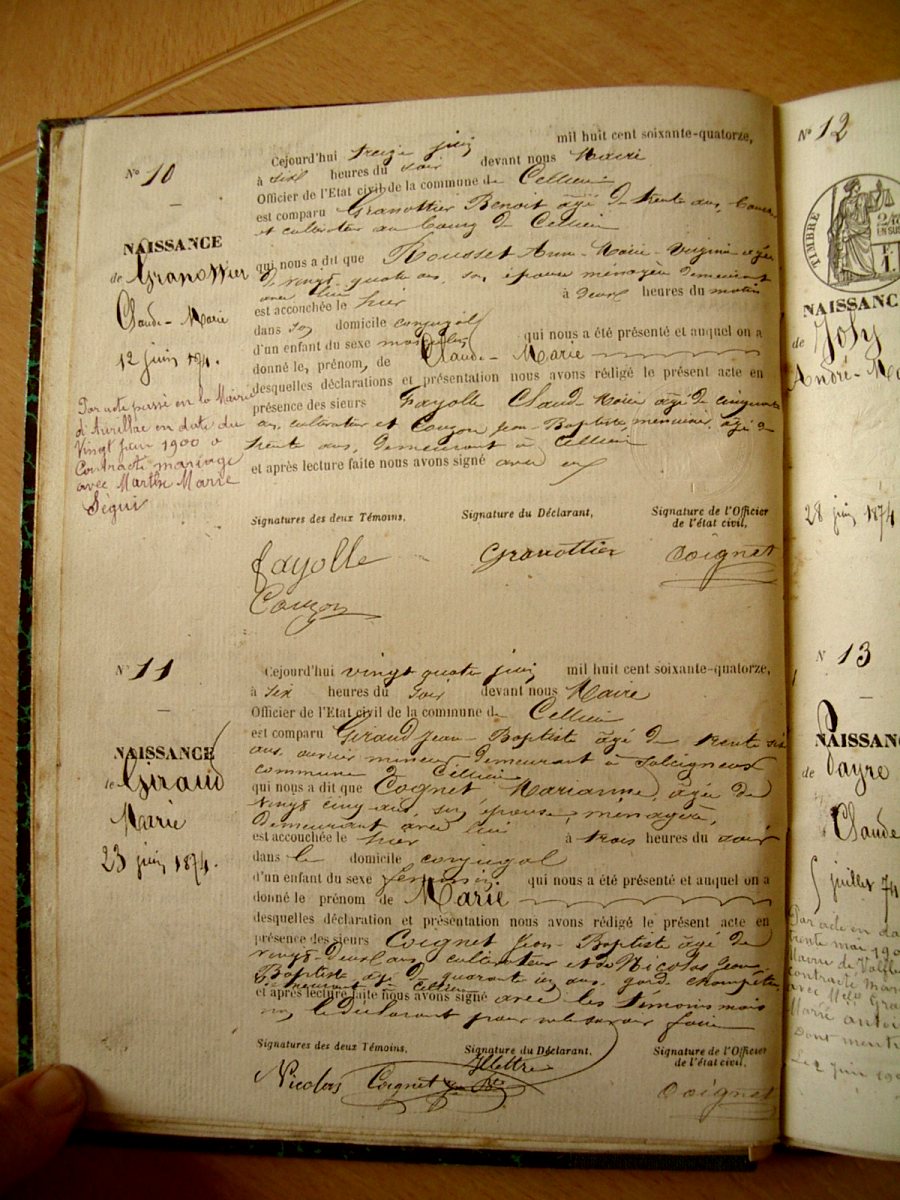 N° 10
NAISSANCE
de Granottier
Claude-Marie
12 juin 1874.
Par acte passé en la Mairie
d'Aurillac en date du
Vingt Juin 1900 a
Contracté mariage
avec Marthe Marie
Ségui
Cejourd'hui treize juin mil huit cent soixante-quatorze,
à six heures du soir devant nous Maire
Officier de l'Etat civil de la commune de Cellieu
est comparu Granottier Benoit âgé de trente ans,
et cultivateur au bourg de Cellieu
qui nous a dit que Rousset Anne-Marie-Virginie âgée
de vingt quatre ans, son épouse ménagère demeurant
avec lui
est accouchée le hier à deux heures du matin
dans son domicile conjugal
d'un enfant du sexe masculin qui nous a été présenté et auquel on a
donné le, prénom, de Claude-Marie
desquelles déclarations et présentation nous avons rédigé le présent acte en
présence des sieurs Fayolle Claude-Marie âgé de cinquante
ans, cultivateur et Couzon Jean-Baptiste, menuisier, âgé de
trente ans, demeurant à Cellieu
et après lecture faite nous avons signé avec eux
Signatures des deux Témoins, Signature du Déclarant, Signature de l'Officier
de l'état civil,
Fayolle Granottier Coignet
Couzon
N° 11
NAISSANCE
de Giraud
Marie
23 juin 1874.
Cejourd'hui vingt quatre juin mil huit cent soixante-quatorze,
à six heures du soir devant nous Maire
Officier de l'Etat civil de la commune de Cellieu
est comparu Giraud Jean-Baptiste âgé de trente six
ans, ouvrier mineur demeurant à Salcigneux
commune de Cellieu
qui nous a dit que Cognet Marianne, âgée de
vingt cinq ans, son épouse, ménagère,
demeurant avec lui
est accouchée le hier à trois heures du soir
dans le domicile conjugal
d'un enfant du sexe féminin qui nous a été présenté et auquel on a
donné le prénom de Marie
desquelles déclaration et présentation nous avons rédigé le présent acte en
présence des sieurs Coignet Jean-Baptiste âgé de
vingt-deux ans, cultivateur et de Nicolas Jean
Baptiste âgé de quarante six ans, garde champêtre,
demeurant à Cellieu
et après lecture faite nous avons signé avec les témoins mais
non le déclarant pour ne le savoir faire
Signatures des deux Témoins, Signature du Déclarant, Signature de l'Officier
de l'état civil,
Illettré
Nicolas Coignet Jn Bte Coignet
N° 12
TIMBRE
NAISSANC
de Joly
André-Ma
28 juin 1874
N 13
NAISSANC
de Payre
Claude
5 juillet 74
Par acte en da
trente mai 190
contracté mar
avec Melle Gra
Marie antoi
Dont menti
Le 2 juin 190